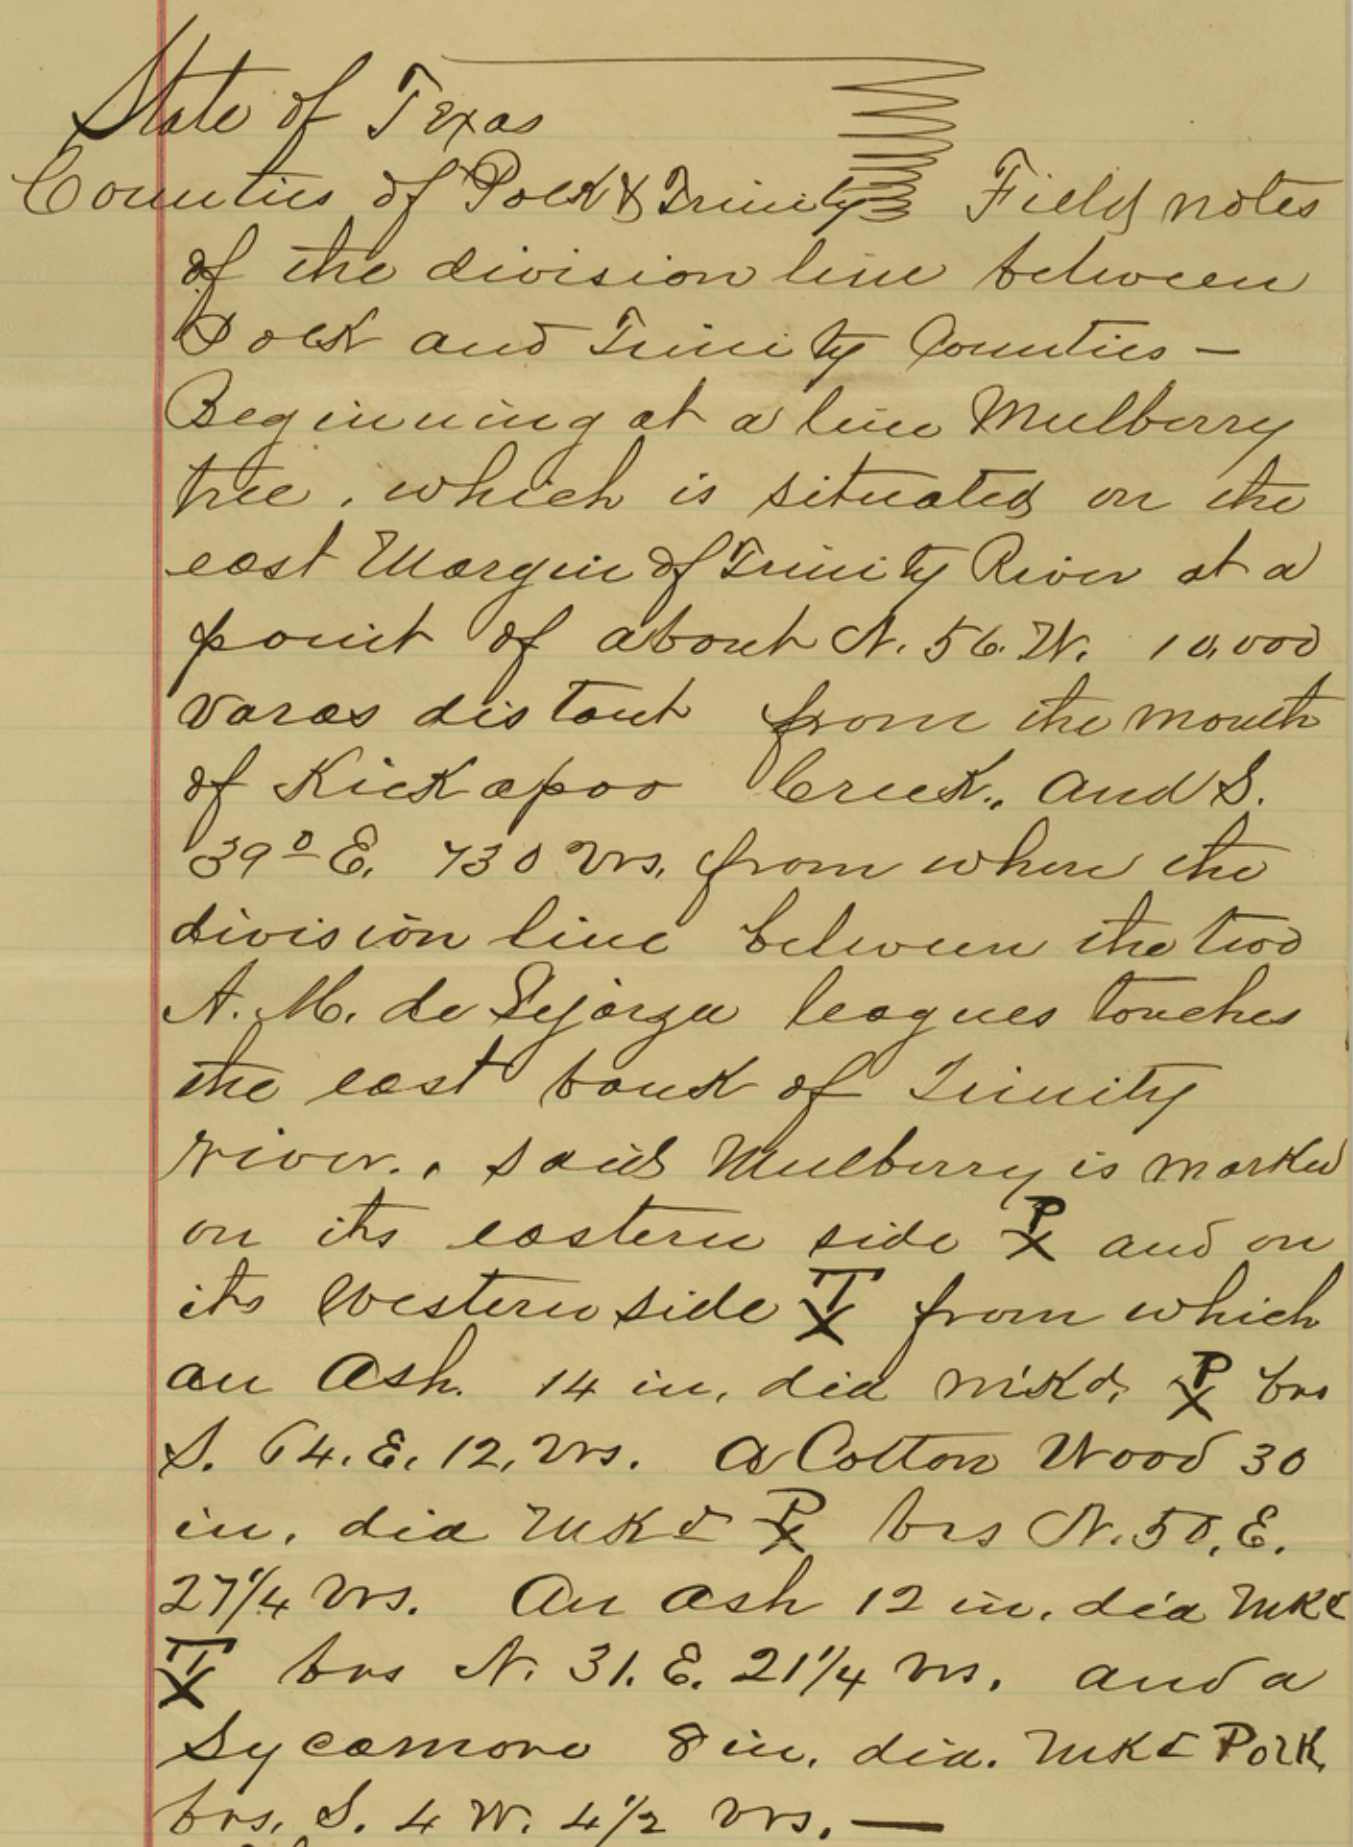 State of Texas
Counties of Polk & Trinity Field notes
of the division line between
Polk and Trinity Counties —
Beginning at a line Mulberry
tree, which is situated on the
east Margin of Trinity River at a
point of about N. 56. W. 10,000
varas distant from the mouth
of Kickapoo Creek., and S.
39° E. 730 vrs. from where the
division line between the two
A. M. de Lejarza leagues touches
the east bank of Trinity
river., said Mulberry is marked
on its eastern side P X and on
its Western side T X from which
an Ash. 14 in. dia mkd. P X brs
S. 64. E. 12. vrs. a Cotton Wood 30
in. dia mkd P X brs N. 50. E.
27 1/4 vrs. An ash 12 in. dia mkd
T X brs N. 31. E. 21 1/4 vrs. and a
Sycamore 8 in. dia. mkd Polk
brs. S. 4 W. 4 1/2 vrs. —